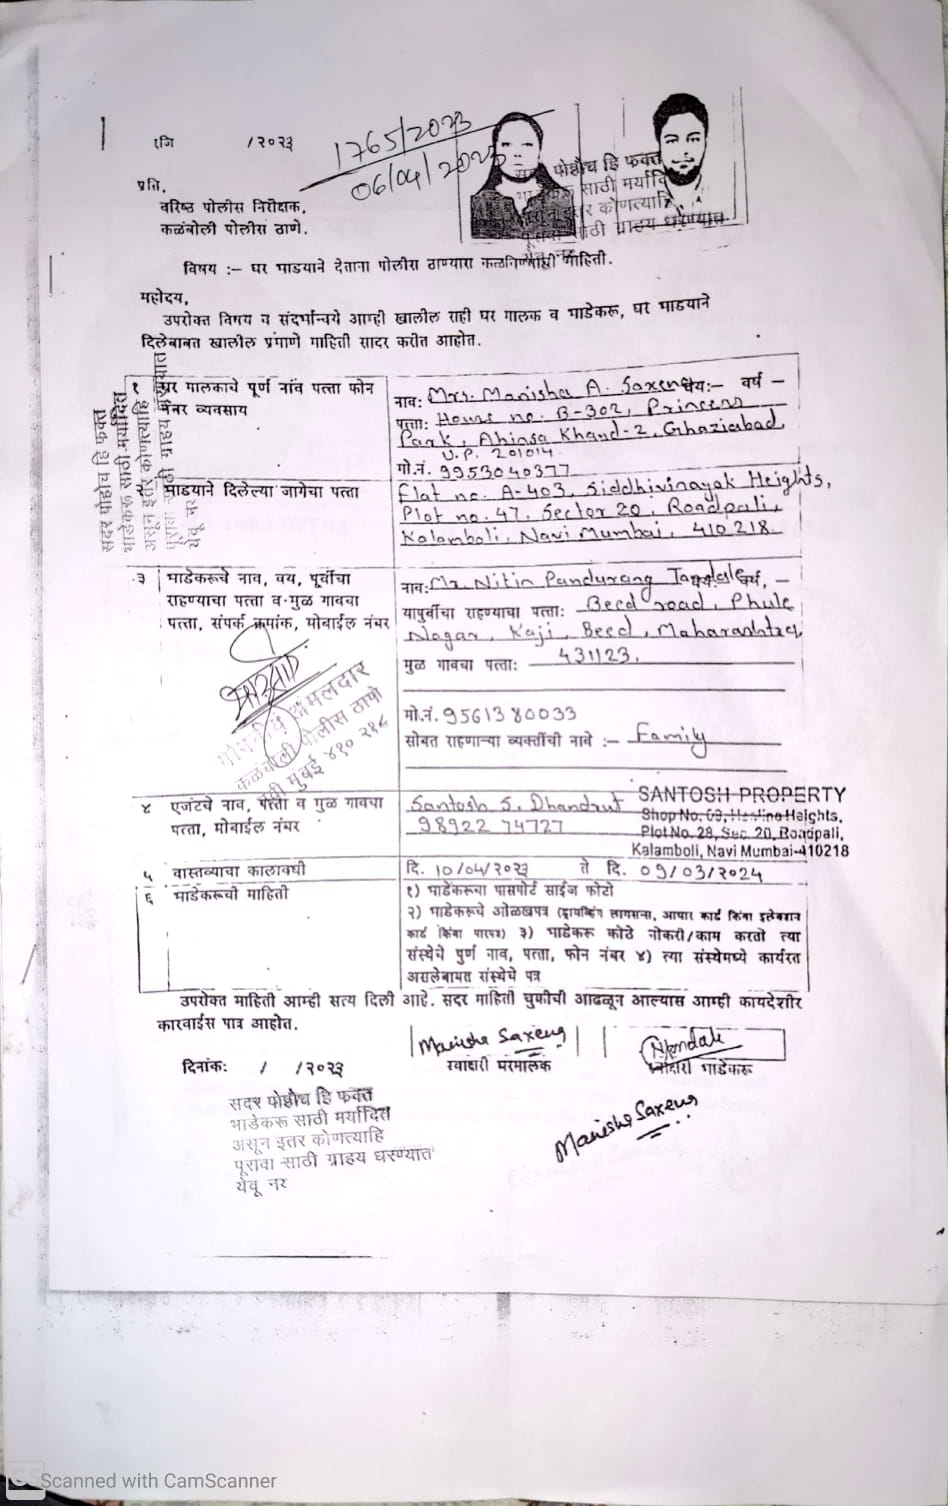 रजि /२०२३
1765/2023
06/04/2023
प्रति,
वरिष्ठ पोलीस निरीक्षक,
कळंबोली पोलीस ठाणे.
सदर पोहौच हि फक्त
साठी मर्यादित
इतर कोणत्याहि
साठी ग्राहय धरण्यात
विषय :- घर भाडयाने देताना पोलीस ठाण्यास माहिती.
महोदय,
उपरोक्त विषय व संदर्भान्वये आम्ही खालील राही घर मालक व भाडेकरू, घर भाडयाने
दिलेबाबत खालील प्रमाणे माहिती सादर करीत आहोत.
१ घर मालकाचे पूर्ण नांव पत्ता फोन
नंबर व्यवसाय
नाव: Mrs. Manisha A. Saxena वय:- वर्ष -
पत्ता: House no. B-302, Princess
Park, Ahinsa Khand-2, Ghaziabad,
U.P. 201014.
मो.नं. 9953040377
सदर पोहोच हि फक्त
भाडेकरू साठी मर्यादित
असून इतर कोणत्याहि
येवू नर
भाडयाने दिलेल्या जागेचा पत्ता
Flat no. A-403, Siddhivinayak Heights,
Plot no. 47, Sector 20, Roadpali,
Kalamboli, Navi Mumbai, 410218.
३ भाडेकरूचे नाव, वय, पूर्वीचा
राहण्याचा पत्ता व मुळ गावचा
पत्ता, संपर्क क्रमांक, मोबाईल नंबर
नाव: Mr. Nitin Pandurang वर्ष, -
यापुर्वीचा राहण्याचा पत्ता: Beed road, Phule
Nagar, Kaji, Beed, Maharashtra,
मुळ गावचा पत्ता: 431123.
मो.नं. 9561380033
सोबत राहणाऱ्या व्यक्तींची नावे :- Family
अंमलदार
कळंबोली पोलीस ठाणे
नवी मुंबई ४१० २१८
४ एजंटचे नाव, पत्ता व मुळ गावचा
पत्ता, मोबाईल नंबर
Santosh S. Dhandrut
98922 74727
SANTOSH PROPERTY
Shop No. 03, Heights,
Plot No. 28, Sec. 20, Roadpali,
Kalamboli, Navi Mumbai-410218
५ वास्तव्याचा कालावधी
दि. 10/04/२०२३ ते दि. 09/03/२०२4
६ भाडेकरूची माहिती
१) भाडेकरूचा पासपोर्ट साईज फोटो
२) भाडेकरूचे ओळखपत्र (ड्रायव्हिंग लायसन्स, आधार कार्ड किंवा इलेक्शन
कार्ड किंवा पारपत्र) ३) भाडेकरू कोठे नोकरी/काम करतो त्या
संस्थेचे पुर्ण नाव, पत्ता, फोन नंबर ४) त्या संस्थेमध्ये कार्यरत
असलेबाबत संस्थेचे पत्र
उपरोक्त माहिती आम्ही सत्य दिली आहे. सदर माहिती चुकीची आढळून आल्यास आम्ही कायदेशीर
कारवाईस पात्र आहोत.
Manisha Saxena
स्वाक्षरी घरमालक
स्वाक्षरी भाडेकरू
दिनांक: / /२०२३
सदर पोहौच हि फक्त
भाडेकरू साठी मर्यादित
असून इतर कोणत्याहि
पूरावा साठी ग्राहय धरण्यात
येवू नर
Manisha Saxena
CS Scanned with CamScanner